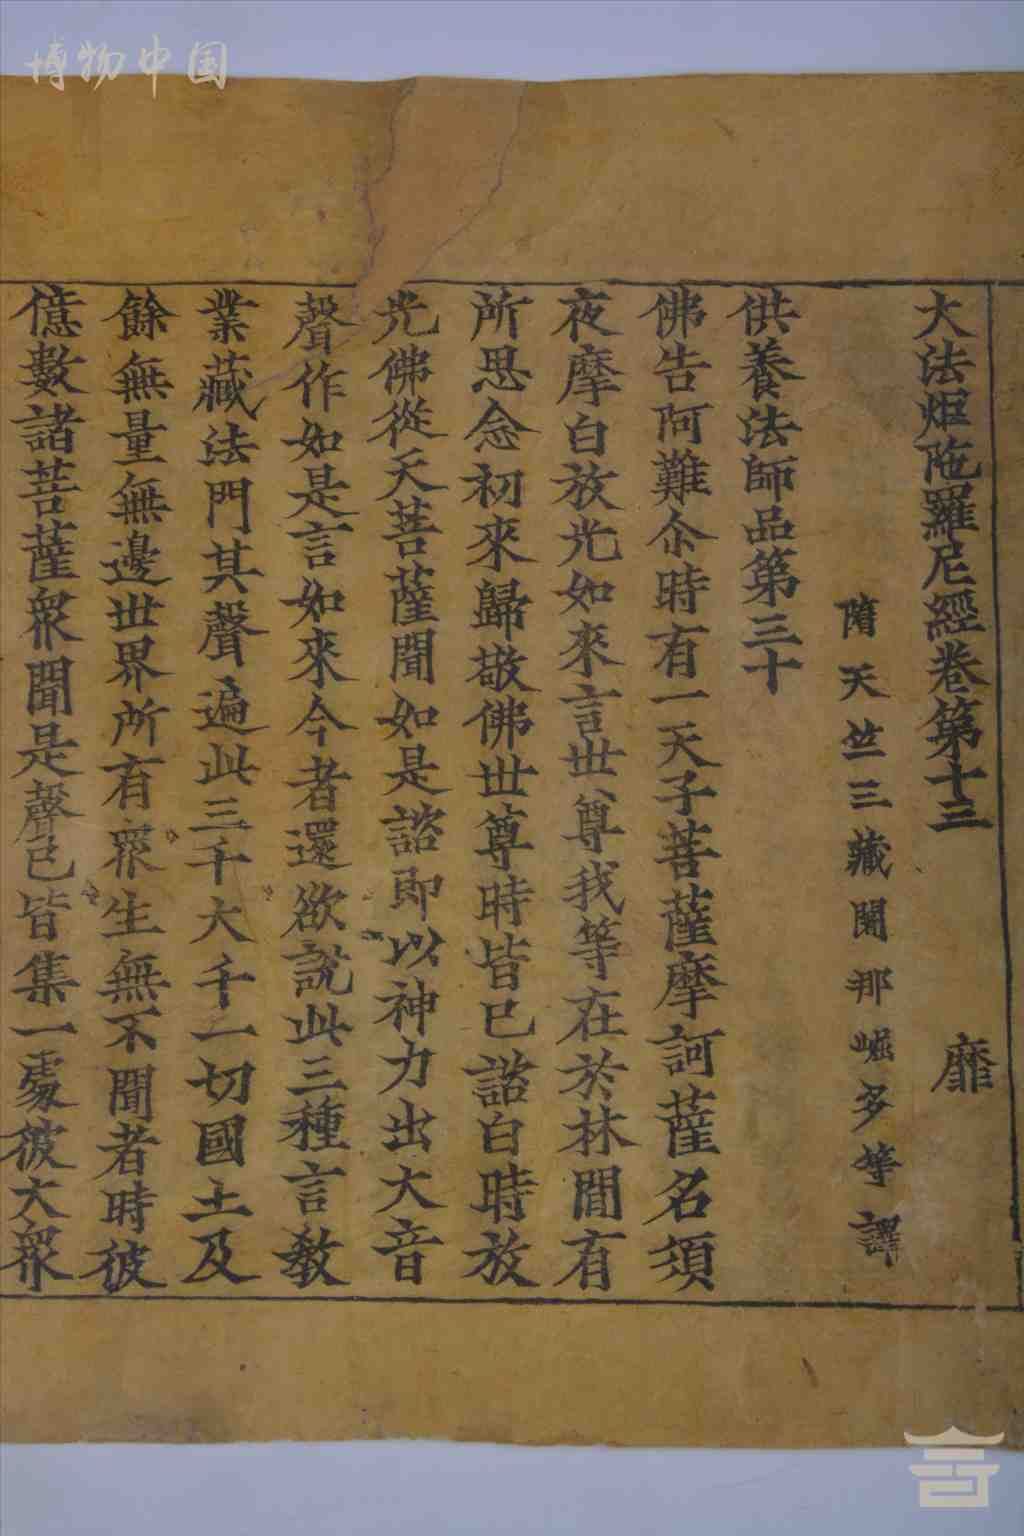 博物中国
大法炬陁羅尼經卷第十三 靡
隋天竺三藏闍那崛多等譯
供養法師品第三十
佛告阿難尒時有一天子菩薩摩訶薩名須
夜摩白放光如來言世尊我等在於林間有
所思念初來歸敬佛世尊時皆已諮白時放
光佛從天菩薩聞如是諮即以神力出大音
聲作如是言如來今者還欲說此三種言教
業藏法門其聲遍此三千大千一切國土及
餘無量無邊世界所有衆生無不聞者時彼
億數諸菩薩衆聞是聲已皆集一處彼大衆